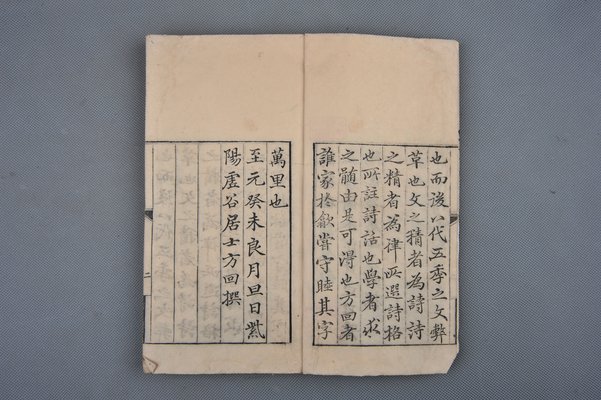 也而後八代五季之文弊
革也文之精者為詩詩
之精者為律所選詩格
也所註詩話也學者求
之髓由是可得也方回者
誰家於歙嘗守睦其字
萬里也
至元癸未良月旦日紫
陽虛谷居士方回撰
二